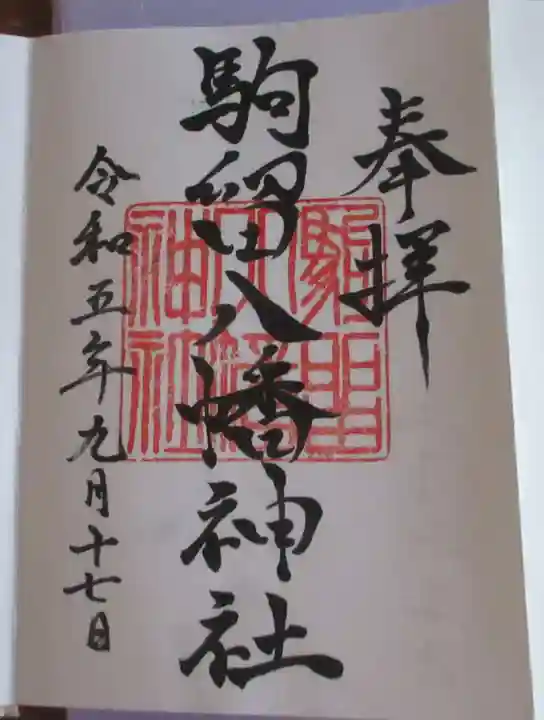 奉拝
駒留八幡神社
令和五年九月十七日
駒留
八幡
神社